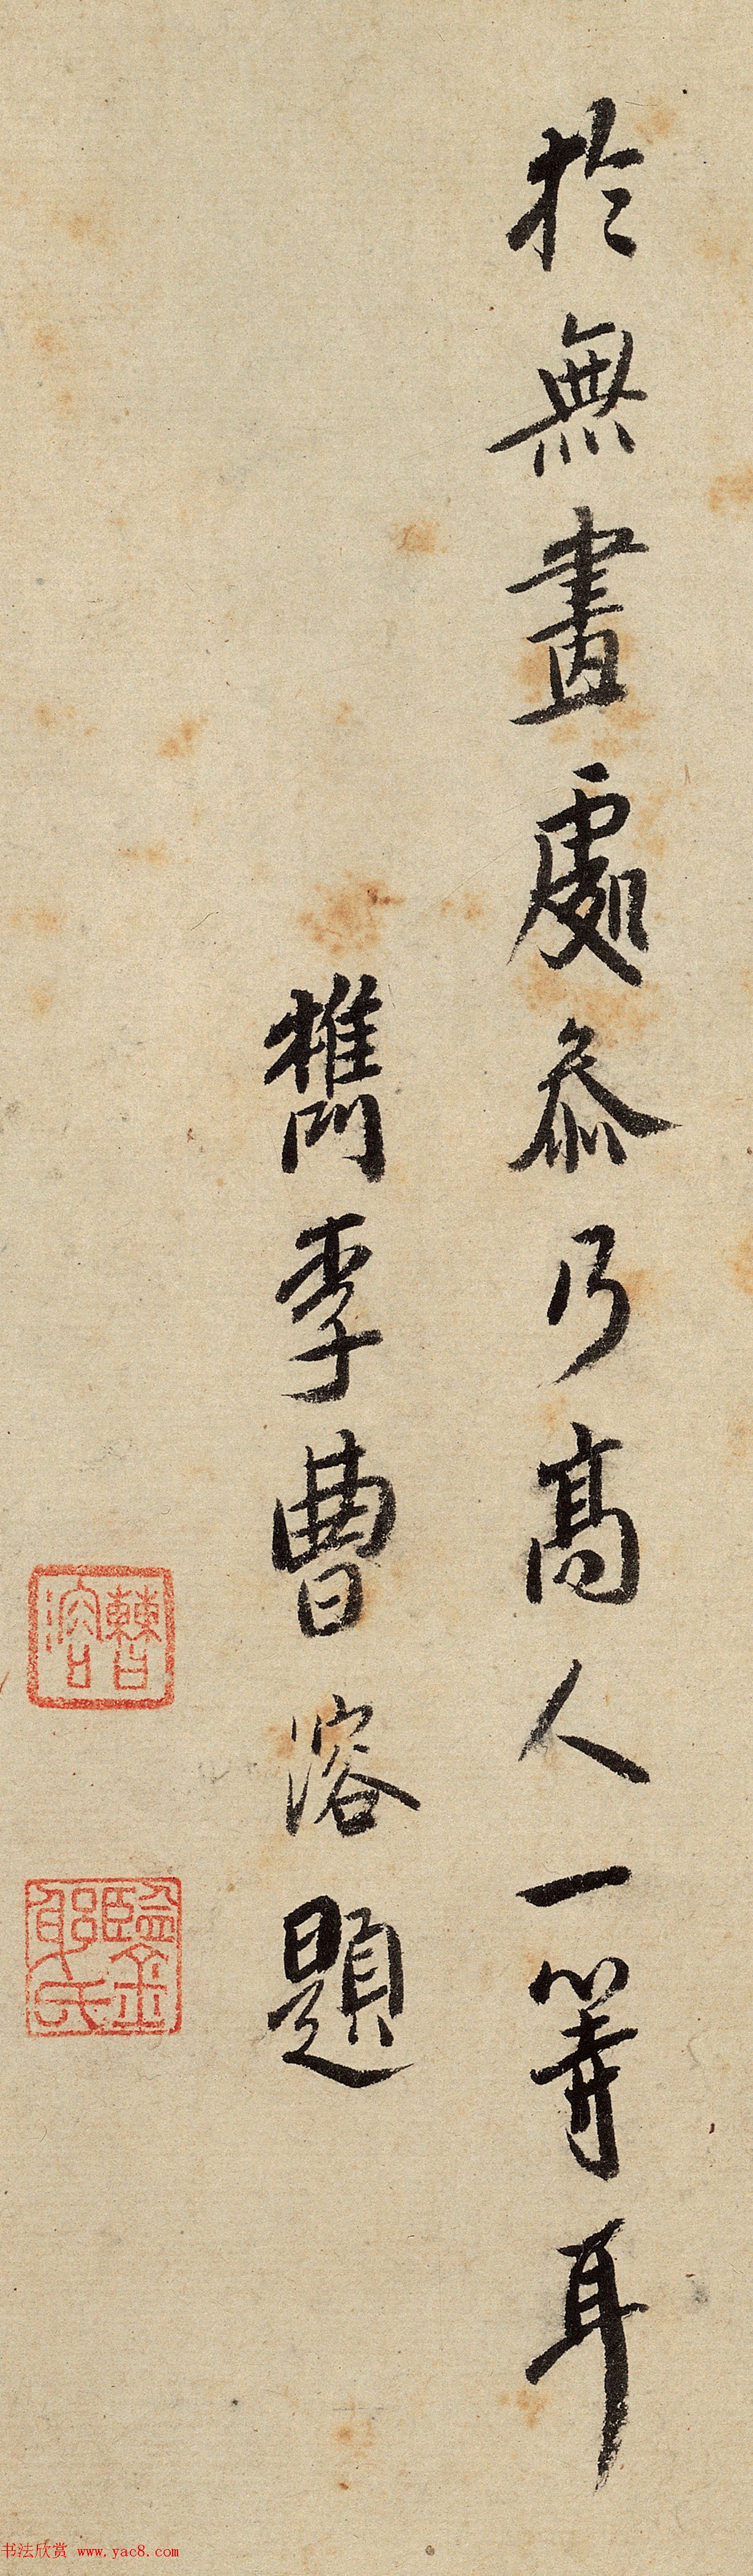 於無畫處叅乃高人一等耳
檇李曹溶題
曹溶
鑒躬氏
书法欣赏 www.yac8.com